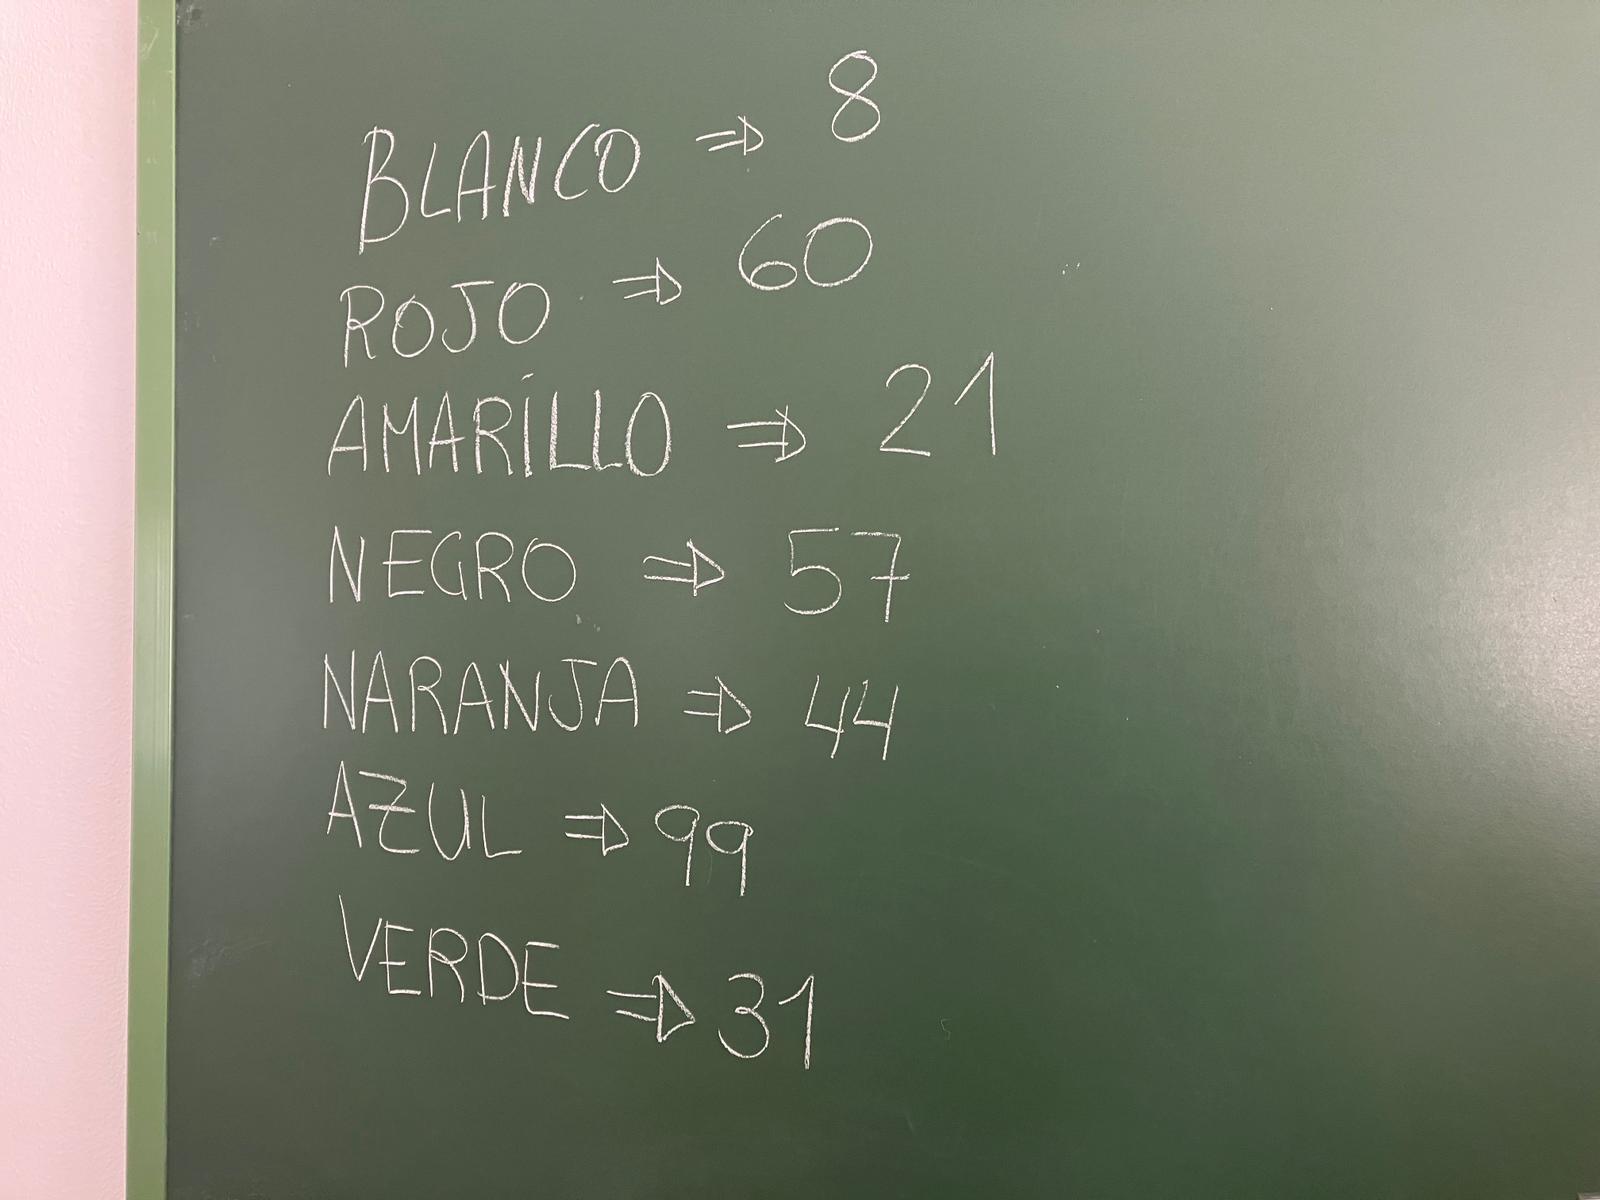 BLANCO ⇒ 8
ROJO ⇒ 60
AMARILLO ⇒ 21
NEGRO ⇒ 57
NARANJA ⇒ 44
AZUL ⇒ 99
VERDE ⇒ 31